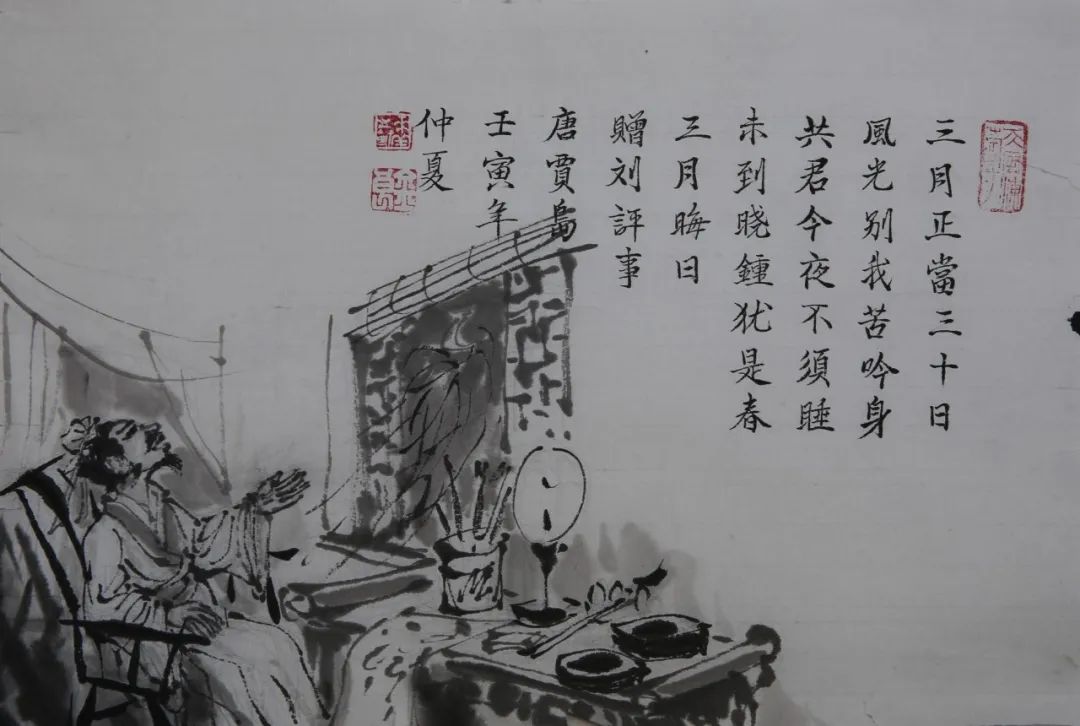 三月正當三十日
風光别我苦吟身
共君今夜不須睡
未到晓鍾犹是春
三月晦日
贈刘評事
唐賈島
壬寅年
仲夏